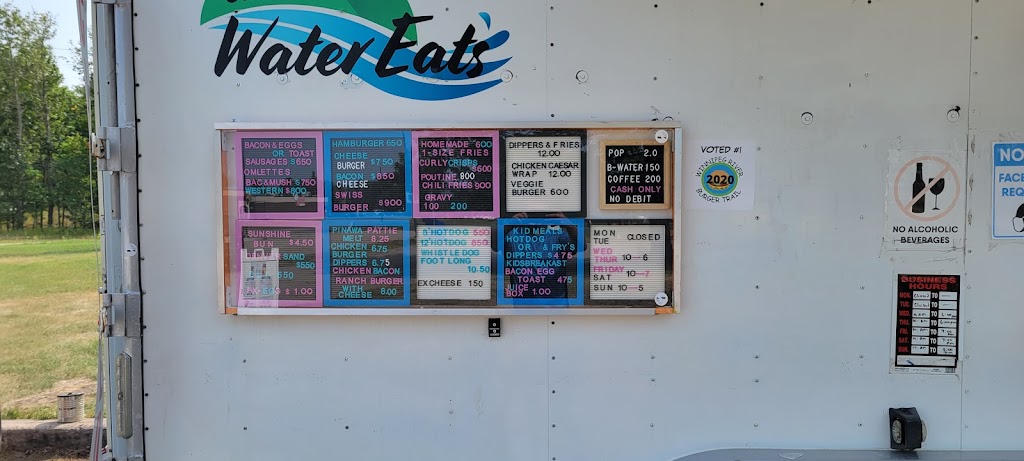 Water Eat's
BACON & EGGS
OR TOAST
SAUSAGES $650
OMLETTES
BAC&MUSH $750
WESTERN $800
HAMBURGER 650
CHEESE
BURGER $750
BACON $850
CHEESE
SWISS
BURGER $900
HOMEMADE 600
1-SIZE FRIES
CURLY CRISPS
$600
POUTINE 800
CHILI FRIES 900
GRAVY
100 200
DIPPERS & FRIES
12.00
CHICKEN CAESAR
WRAP 12.00
VEGGIE
BURGER 600
POP 2.0
B-WATER 150
COFFEE 200
CASH ONLY
NO DEBIT
SUNSHINE
BUN $4.50
SAND
$550
550
EGG $1.00
PINAWA PATTIE
MELT 8.25
CHICKEN
BURGER 6.75
DIPPERS 6.75
CHICKEN BACON
RANCH BURGER
WITH
CHEESE 8.00
8"HOTDOG 550
12"HOTDOG 650
WHISTLEDOG
FOOT LONG
10.50
EXCHEESE 150
KID MEALS
HOTDOG
OR & FRY'S
DIPPERS $475
KIDSBREAKAST
BACON EGG
TOAST 475
JUICE
BOX 1.00
MON
TUE CLOSED
WED
THUR 10-6
FRIDAY 10-7
SAT
SUN 10-5
VOTED #1
WINNIPEG RIVER
2020
BURGER TRAIL
NO ALCOHOLIC
BEVERAGES
NO
FACE
REQ
BUSINESS
HOURS
MON. TO
TUE. TO
WED. TO
THU. TO
FRI. TO
SAT. TO
SUN. TO